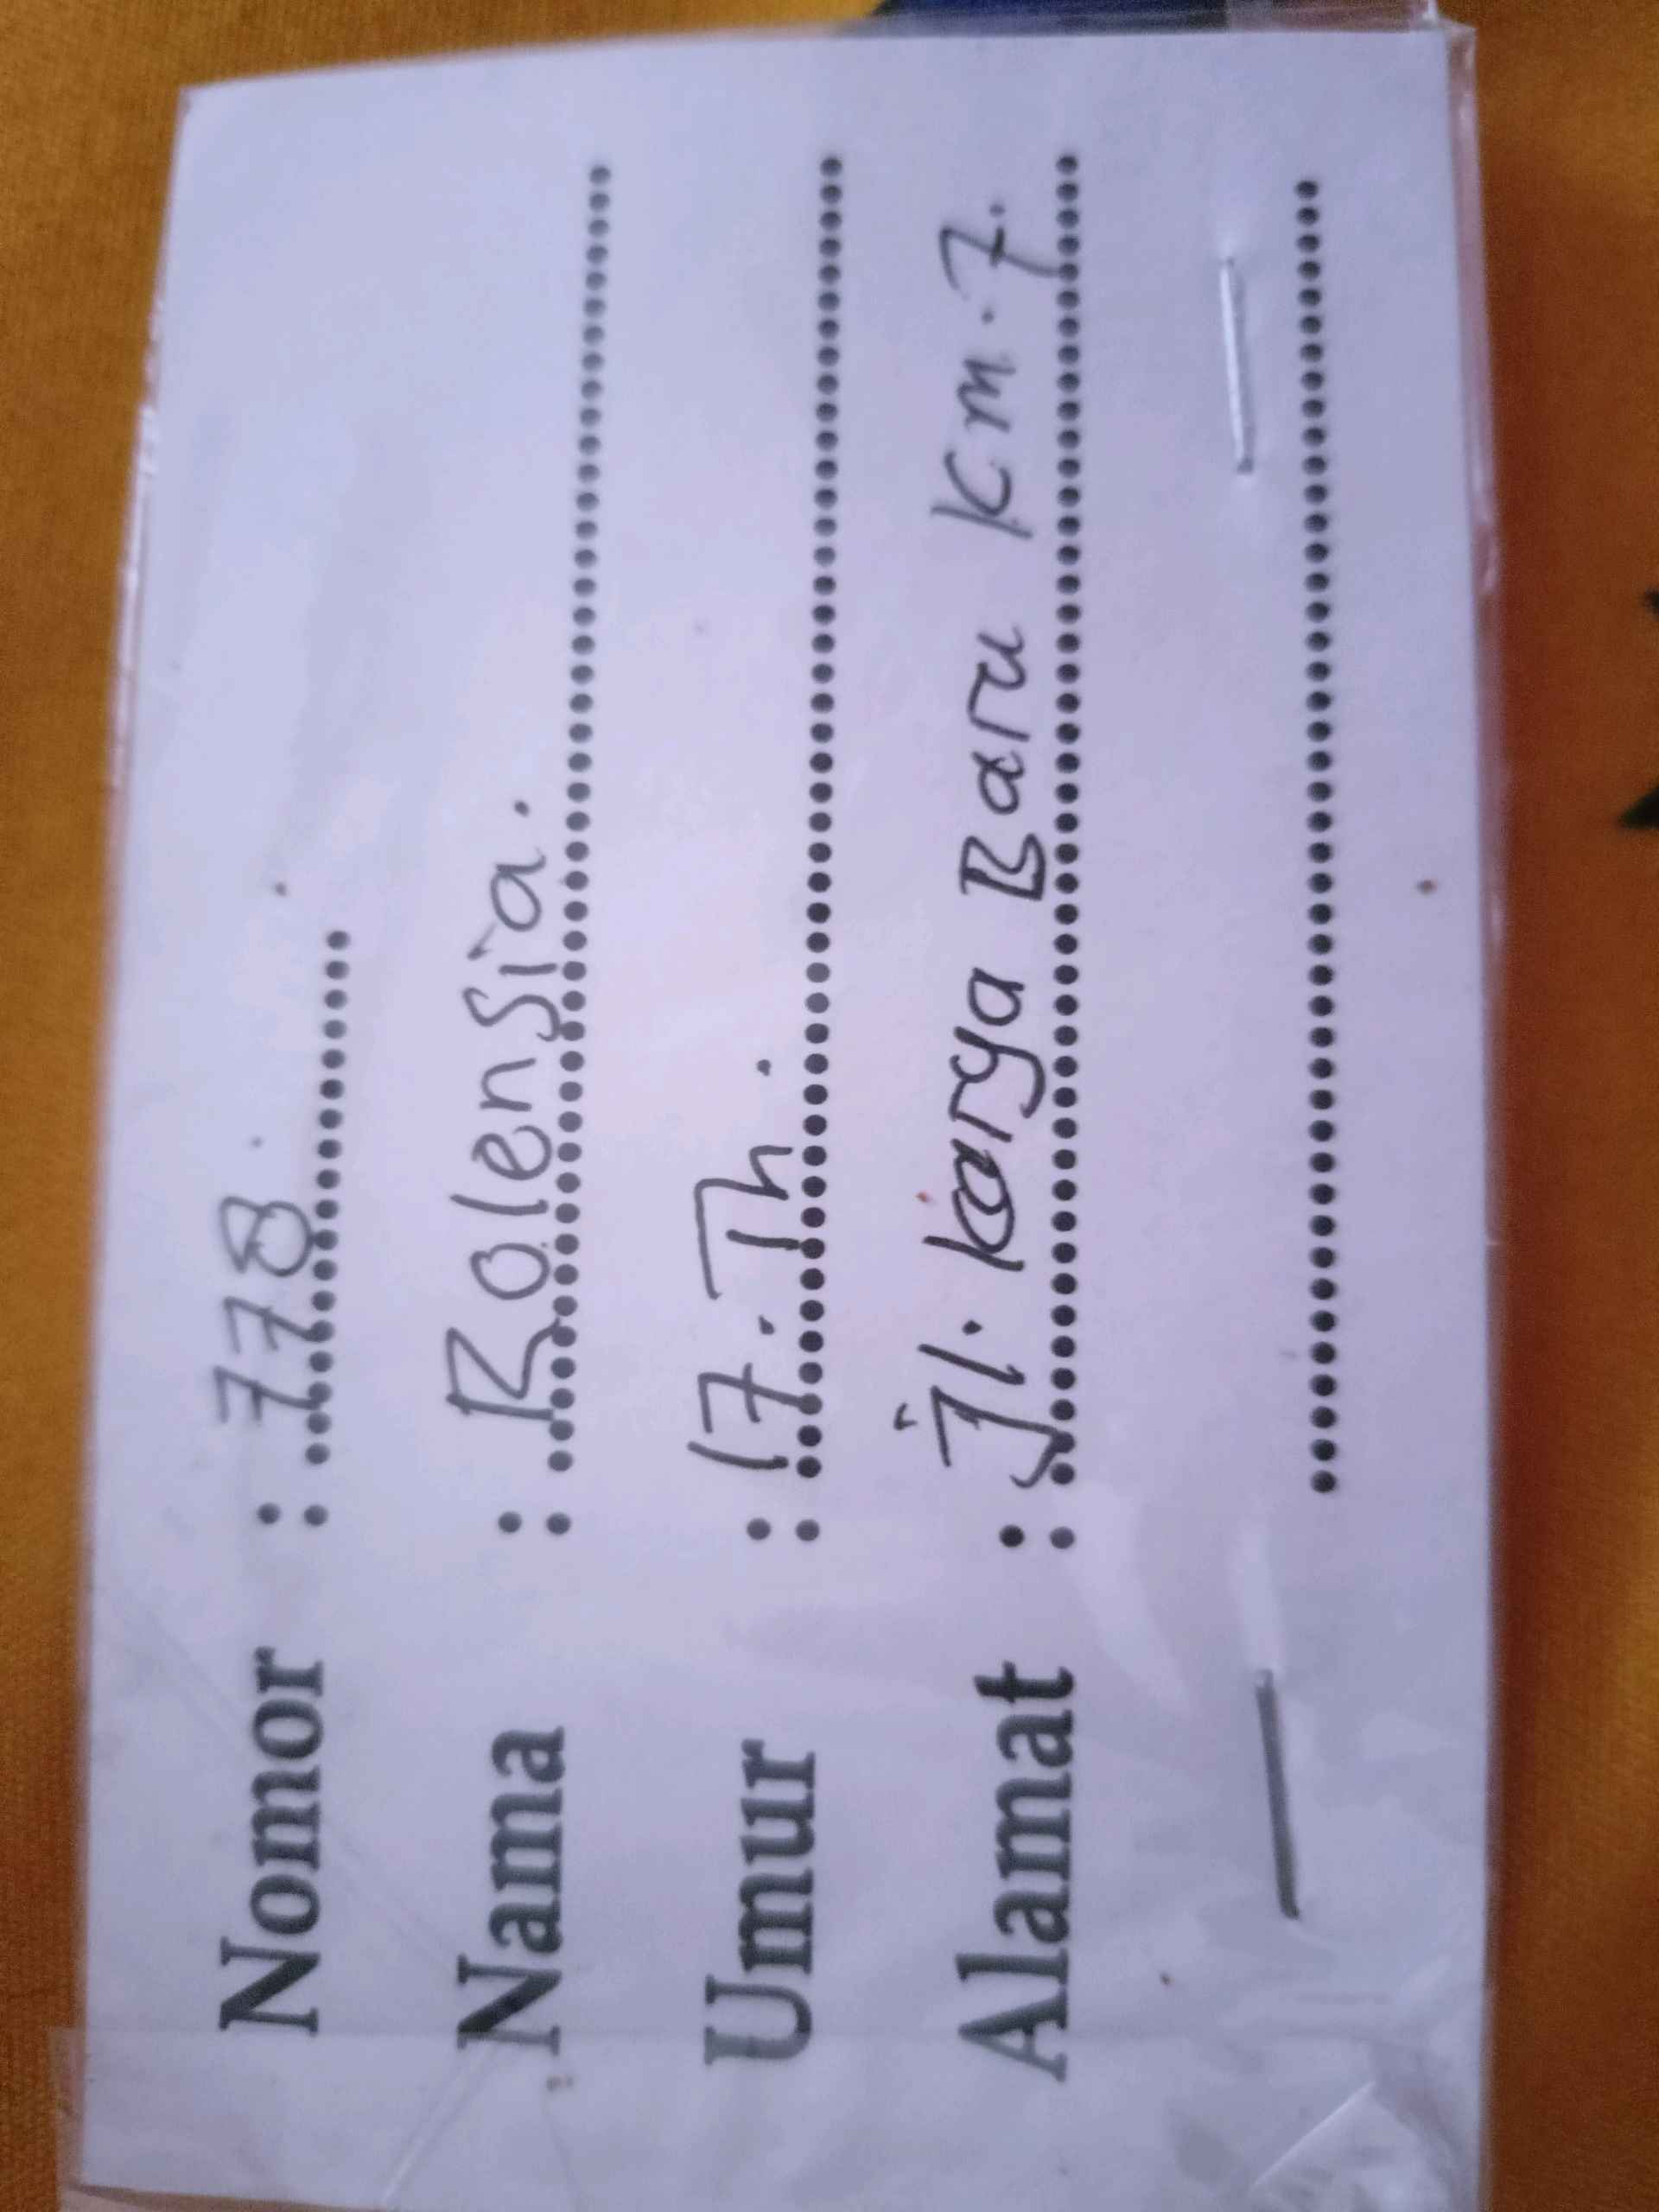 Nomor : 778
Nama : Rolensia.
Umur : 17. Th.
Alamat : Jl. karya Baru Km. 7.